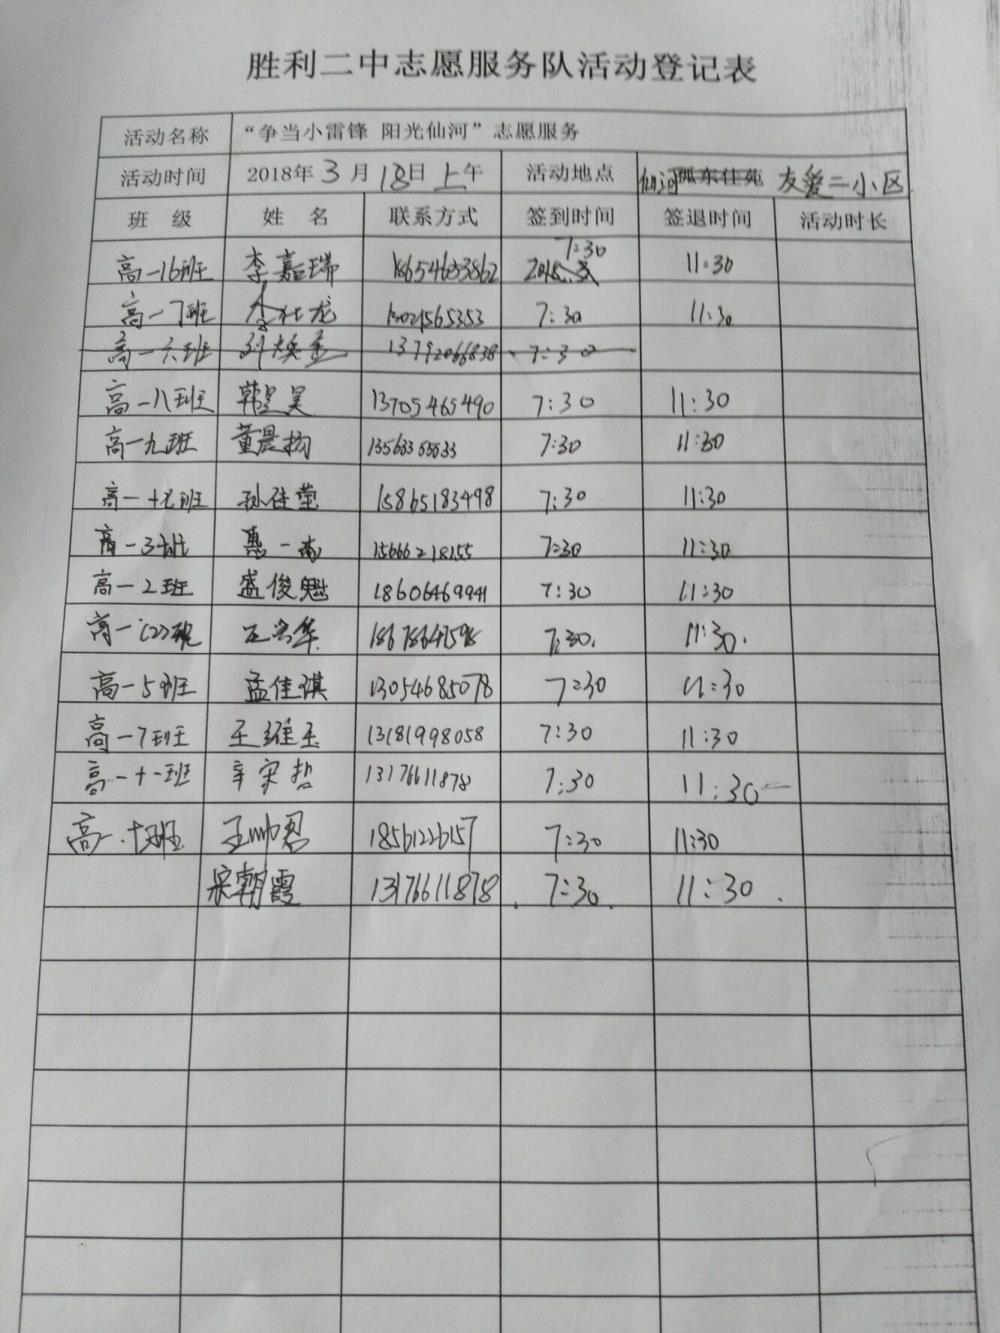 胜利二中志愿服务队活动登记表
活动名称 “争当小雷锋 阳光仙河”志愿服务
活动时间 2018年3月18日上午 活动地点 仙河孤东佳苑 友爱二小区
班 级 姓 名 联系方式 签到时间 签退时间 活动时长
7:30
高一16班 李嘉瑞 18654653862 11:30
高一7班 龙 7:30 11:30
高一六班 刘焕 13792066838 7:30
高一八班 韩昊 13705465490 7:30 11:30
高一九班 董晨杨 7:30 11:30
高一十七班 孙佳莹 15865183498 7:30 11:30
高一3班 惠一 15666218155 7:30 11:30
高一2班 盛俊魁 18606469941 7:30 11:30
高一(2)班 7:30. 11:30.
高一5班 孟佳淇 13054685078 7:30 11:30
高一7班 王维玉 13181998058 7:30 11:30
高一十一班 辛宋哲 13176611878 7:30 11:30
高一.十班 王帅君 7:30 11:30
宋朝霞 13176611878 7:30 11:30